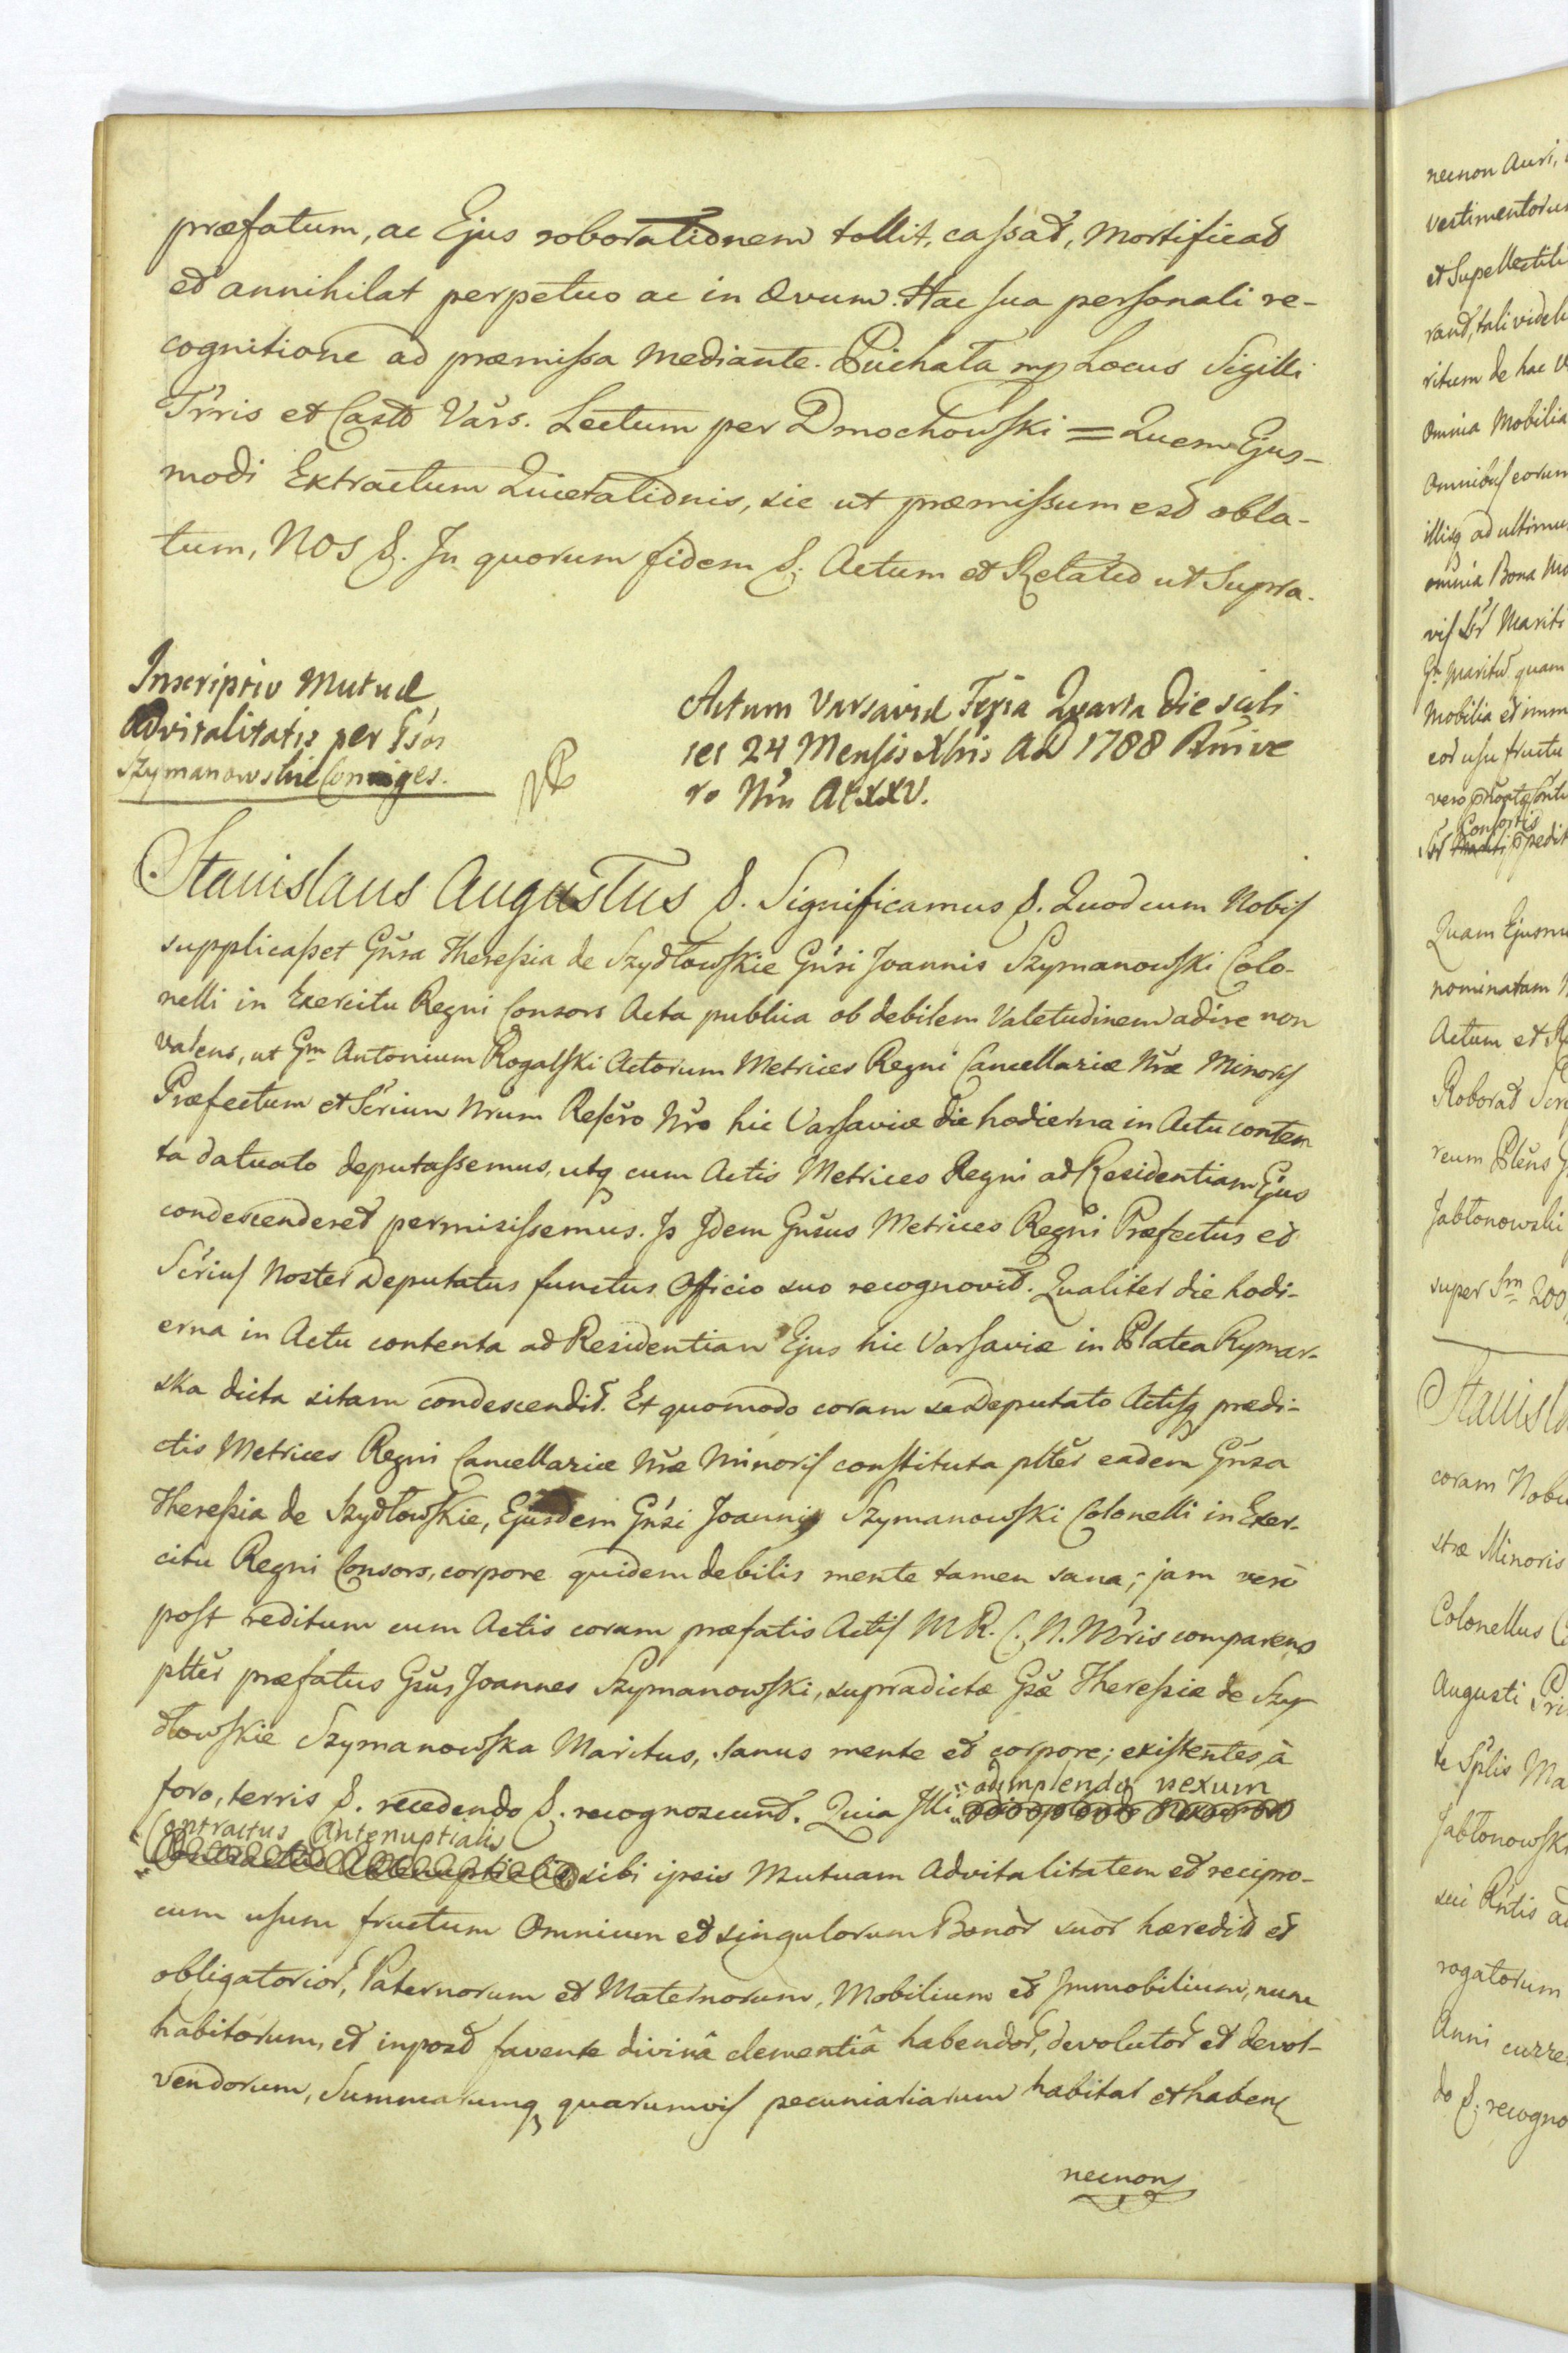 præfatum, ac Ejus roborationem tollit, caſsat, Mortificat
et annihilat perpetuo ac in Ævum. Hac ſua perſonali re-
cognitione ad præmiſsa mediante. Puchata mp Locus Sigilli
Trris et Castr Vars. Lectum per Dmochowſki = Quem Ejus-
modi Extractum Quietationis, sic ut præmiſsum est obla-
tum, NOS &. In quorum fidem &; Actum et Relatio ut Supra.
Inscriptio Mutuæ
advitalitatis per Gsos
Szymanowskie Conjuges.
Actum Varsaviæ Feria Quarta Die scili
cet 24 Menſis Xbris AD 1788
Stanislaus Augustus &. Significamus &. Quod cum Nobiſ
supplicaſset Gnsa Thereſsia de Szydłowſkie Gnsi Joannis Szymanowſki Colo-
nelli in Exercitu Regni Consors Acta publica ob debilem Valetudinem adire non
valens, ut Gm Antonium Rogalſki Actorum Metrices Regni Cancellariæ Nræ Minoriſ
Præfectum et Scrium Nrum Reſcro Nro hic Varſaviæ die hodierna in Actu conten
ta datuato deputaſsemus, utq cum Actis Metrices Regni ad Residentiam Ejus
condescenderet permisiſsemus. Is Idem Gnsus Metrices Regni Præfectus et
Scriuſ Noster Deputatus functus Officio suo recognovit. Qualiter die hodi-
erna in Actu contenta ad Residentiam Ejus hic Varſaviæ in Platea Rymar-
ska dicta sitam condescendit. Et quomodo coram se Deputato Actiſq prædi-
ctis Metrices Regni Cancellariæ Nræ Minoriſ conſtituta plter eadem Gnsa
Thereſsia de Szydłowſkie, Ejusdem Gnsi Joannis Szymanowſki Colonelli in Exer-
citu Regni Consors, corpore quidem debilis mente tamen sana; jam vero
poſt reditum cum Actis coram præfatis Actiſ M R. C. N. Mris comparens
plter præfatus Gsus Joannes Szymanowſki, supradictæ Gsæ Thereſsiæ de Szy
dłowſkie Szymanowſka Maritus, sanus mente et corpore; exiſtentes, à
foro, terris &. recedendo &. recognoscunt. Quia Illi adimplendo nexum
Contractus Antenuptialis sibi ipsis Mutuam Advitalitatem et recipro-
cum uſum fructum Omnium et singulorum Bonor suor hæredit et
obligatorior, Paternorum et Maternorum, Mobilium et Immobilium, nunc
habitorum, et inpost favente divinâ clementiâ habendor, devolutor et devol-
vendorum, Summarumq quarumviſ pecuniariarum habitar et haben
necnon
necnon Auri,
vestimentoru
et Supellectili
rant, tali videli
ritum de hac V
Omnia Mobilia
Omnibuſ eorum
illisq ad ultimu
omnia Bona Mo
Gn Maritus quam
Mobilia et imm
eor uſu fructu
Consortis
Quam Ejusmo
nominatam N
Actum et R
Roborat Scr
reum Plens G
Jabłonowski
super Sm 200
Stanisla
coram Nobis
stræ Minoris
Colonellus C
Augusti Pri
te Splis Ma
Jabłonowſki
sui Rntis a
rogatorum
Anni curre
do &; recogno